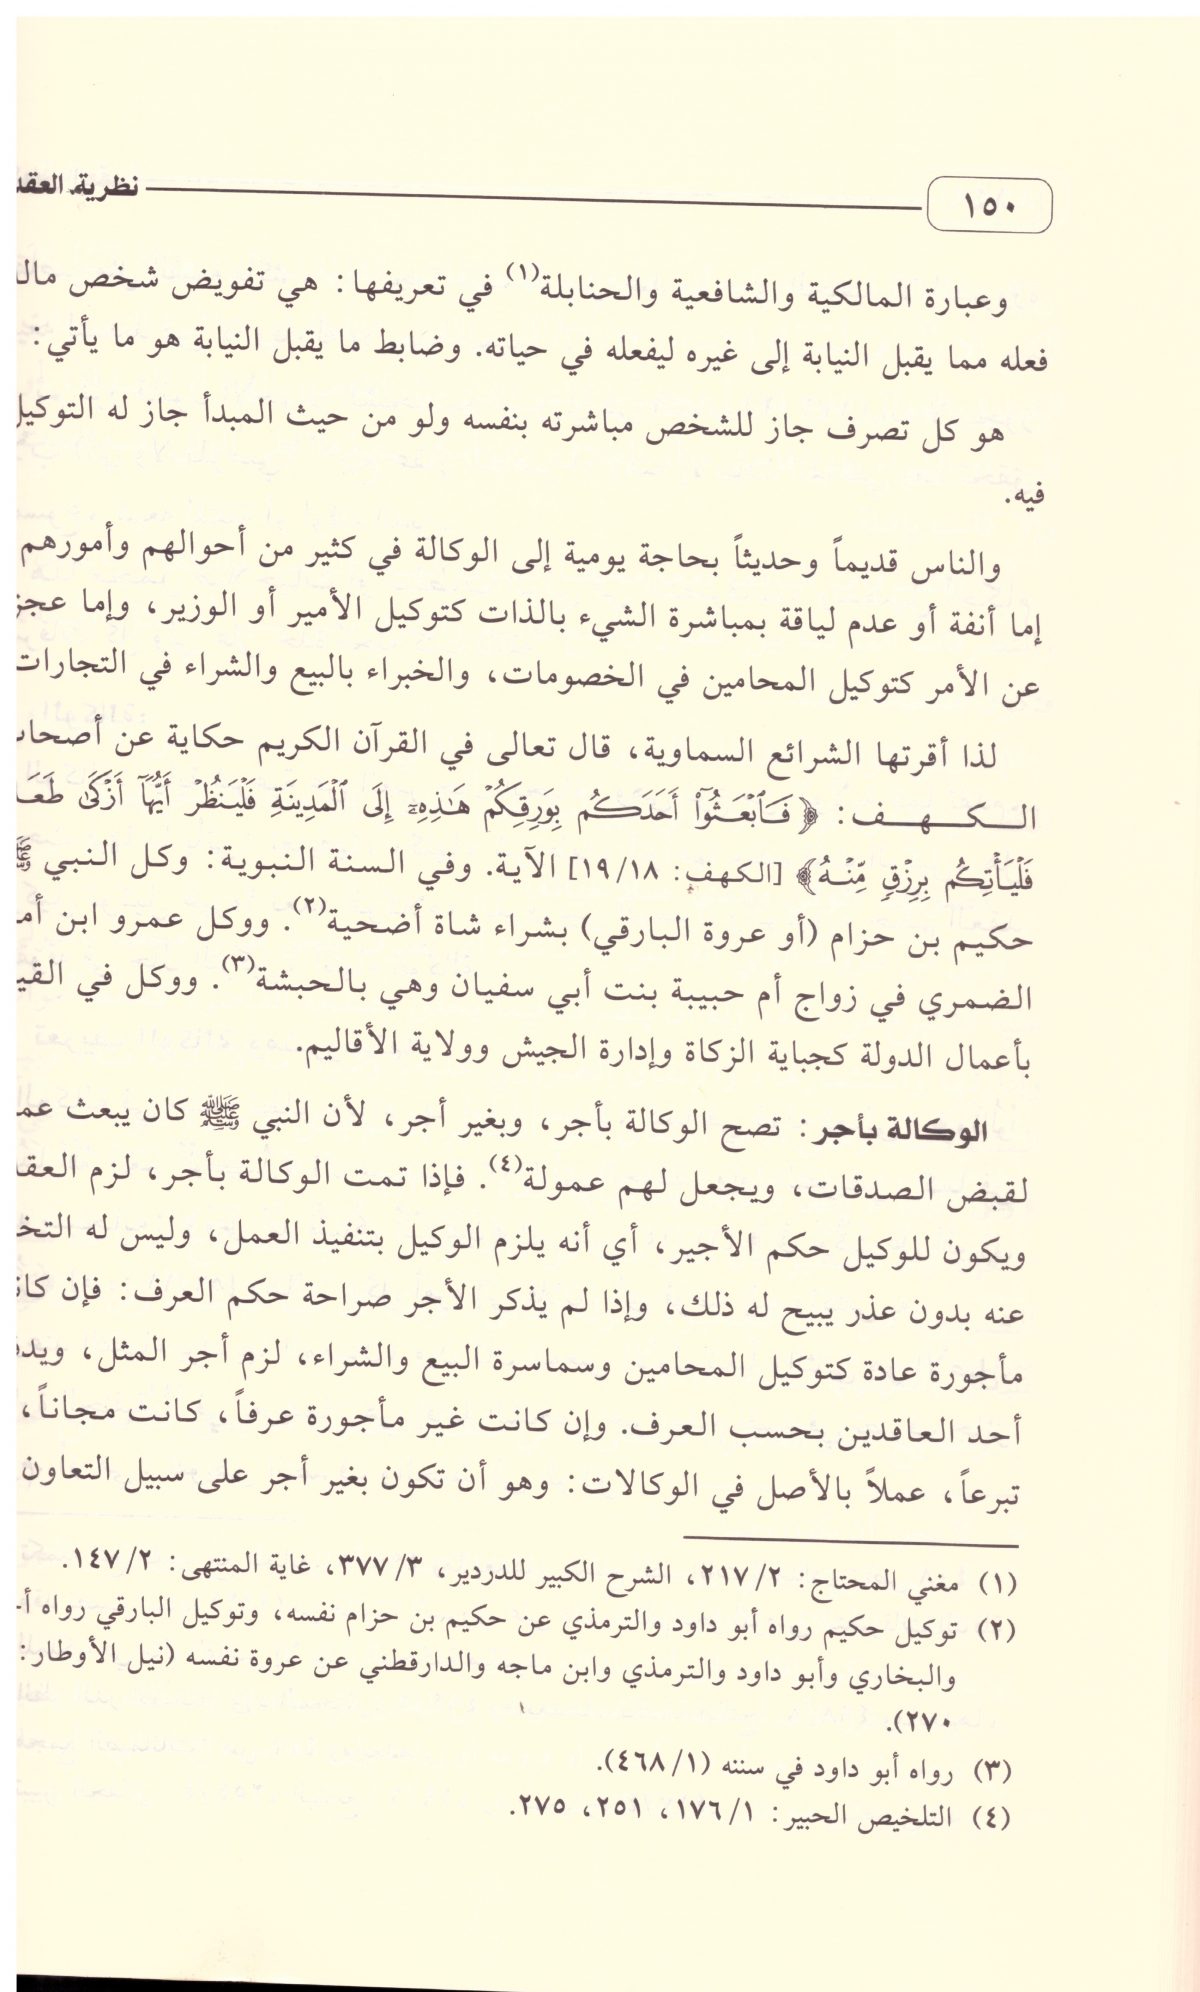 ١٥٠ نظرية العقد
وعبارة المالكية والشافعية والحنابلة(١) في تعريفها: هي تفويض شخص ماله
فعله مما يقبل النيابة إلى غيره ليفعله في حياته. وضابط ما يقبل النيابة هو ما يأتي:
هو كل تصرف جاز للشخص مباشرته بنفسه ولو من حيث المبدأ جاز له التوكيل
فيه.
والناس قديماً وحديثاً بحاجة يومية إلى الوكالة في كثير من أحوالهم وأمورهم
إما أنفة أو عدم لياقة بمباشرة الشيء بالذات كتوكيل الأمير أو الوزير، وإما عجز
عن الأمر كتوكيل المحامين في الخصومات، والخبراء بالبيع والشراء في التجارات
لذا أقرتها الشرائع السماوية، قال تعالى في القرآن الكريم حكاية عن أصحاب
الكهف: ﴿فَٱبْعَثُوٓا۟ أَحَدَكُم بِوَرِقِكُمْ هَٰذِهِۦٓ إِلَى ٱلْمَدِينَةِ فَلْيَنظُرْ أَيُّهَآ أَزْكَىٰ طَعَا
فَلْيَأْتِكُم بِرِزْقٍ مِّنْهُ﴾ [الكهف: ١٩/١٨] الآية. وفي السنة النبوية: وكل النبي ﷺ
حكيم بن حزام (أو عروة البارقي) بشراء شاة أضحية(٢). ووكل عمرو ابن أم
الضمري في زواج أم حبيبة بنت أبي سفيان وهي بالحبشة(٣). ووكل في القي
بأعمال الدولة كجباية الزكاة وإدارة الجيش وولاية الأقاليم.
الوكالة بأجر: تصح الوكالة بأجر، وبغير أجر، لأن النبي ﷺ كان يبعث عم
لقبض الصدقات، ويجعل لهم عمولة(٤). فإذا تمت الوكالة بأجر، لزم العقد
ويكون للوكيل حكم الأجير، أي أنه يلزم الوكيل بتنفيذ العمل، وليس له التخ
عنه بدون عذر يبيح له ذلك، وإذا لم يذكر الأجر صراحة حكم العرف: فإن كان
مأجورة عادة كتوكيل المحامين وسماسرة البيع والشراء، لزم أجر المثل، ويدف
أحد العاقدين بحسب العرف. وإن كانت غير مأجورة عرفاً، كانت مجاناً،
تبرعاً، عملاً بالأصل في الوكالات: وهو أن تكون بغير أجر على سبيل التعاون
(١) مغني المحتاج: ٢١٧/٢، الشرح الكبير للدردير، ٣٧٧/٣، غاية المنتهى: ١٤٧/٢.
(٢) توكيل حكيم رواه أبو داود والترمذي عن حكيم بن حزام نفسه، وتوكيل البارقي رواه أ
والبخاري وأبو داود والترمذي وابن ماجه والدارقطني عن عروة نفسه (نيل الأوطار:
٢٧٠).
(٣) رواه أبو داود في سننه (٤٦٨/١).
(٤) التلخيص الحبير: ١٧٦/١، ٢٥١، ٢٧٥.